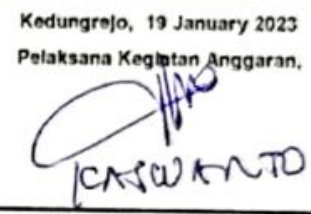 Kedungrejo, 19 January 2023
Pelaksana Kegiatan Anggaran,
KASWANTO